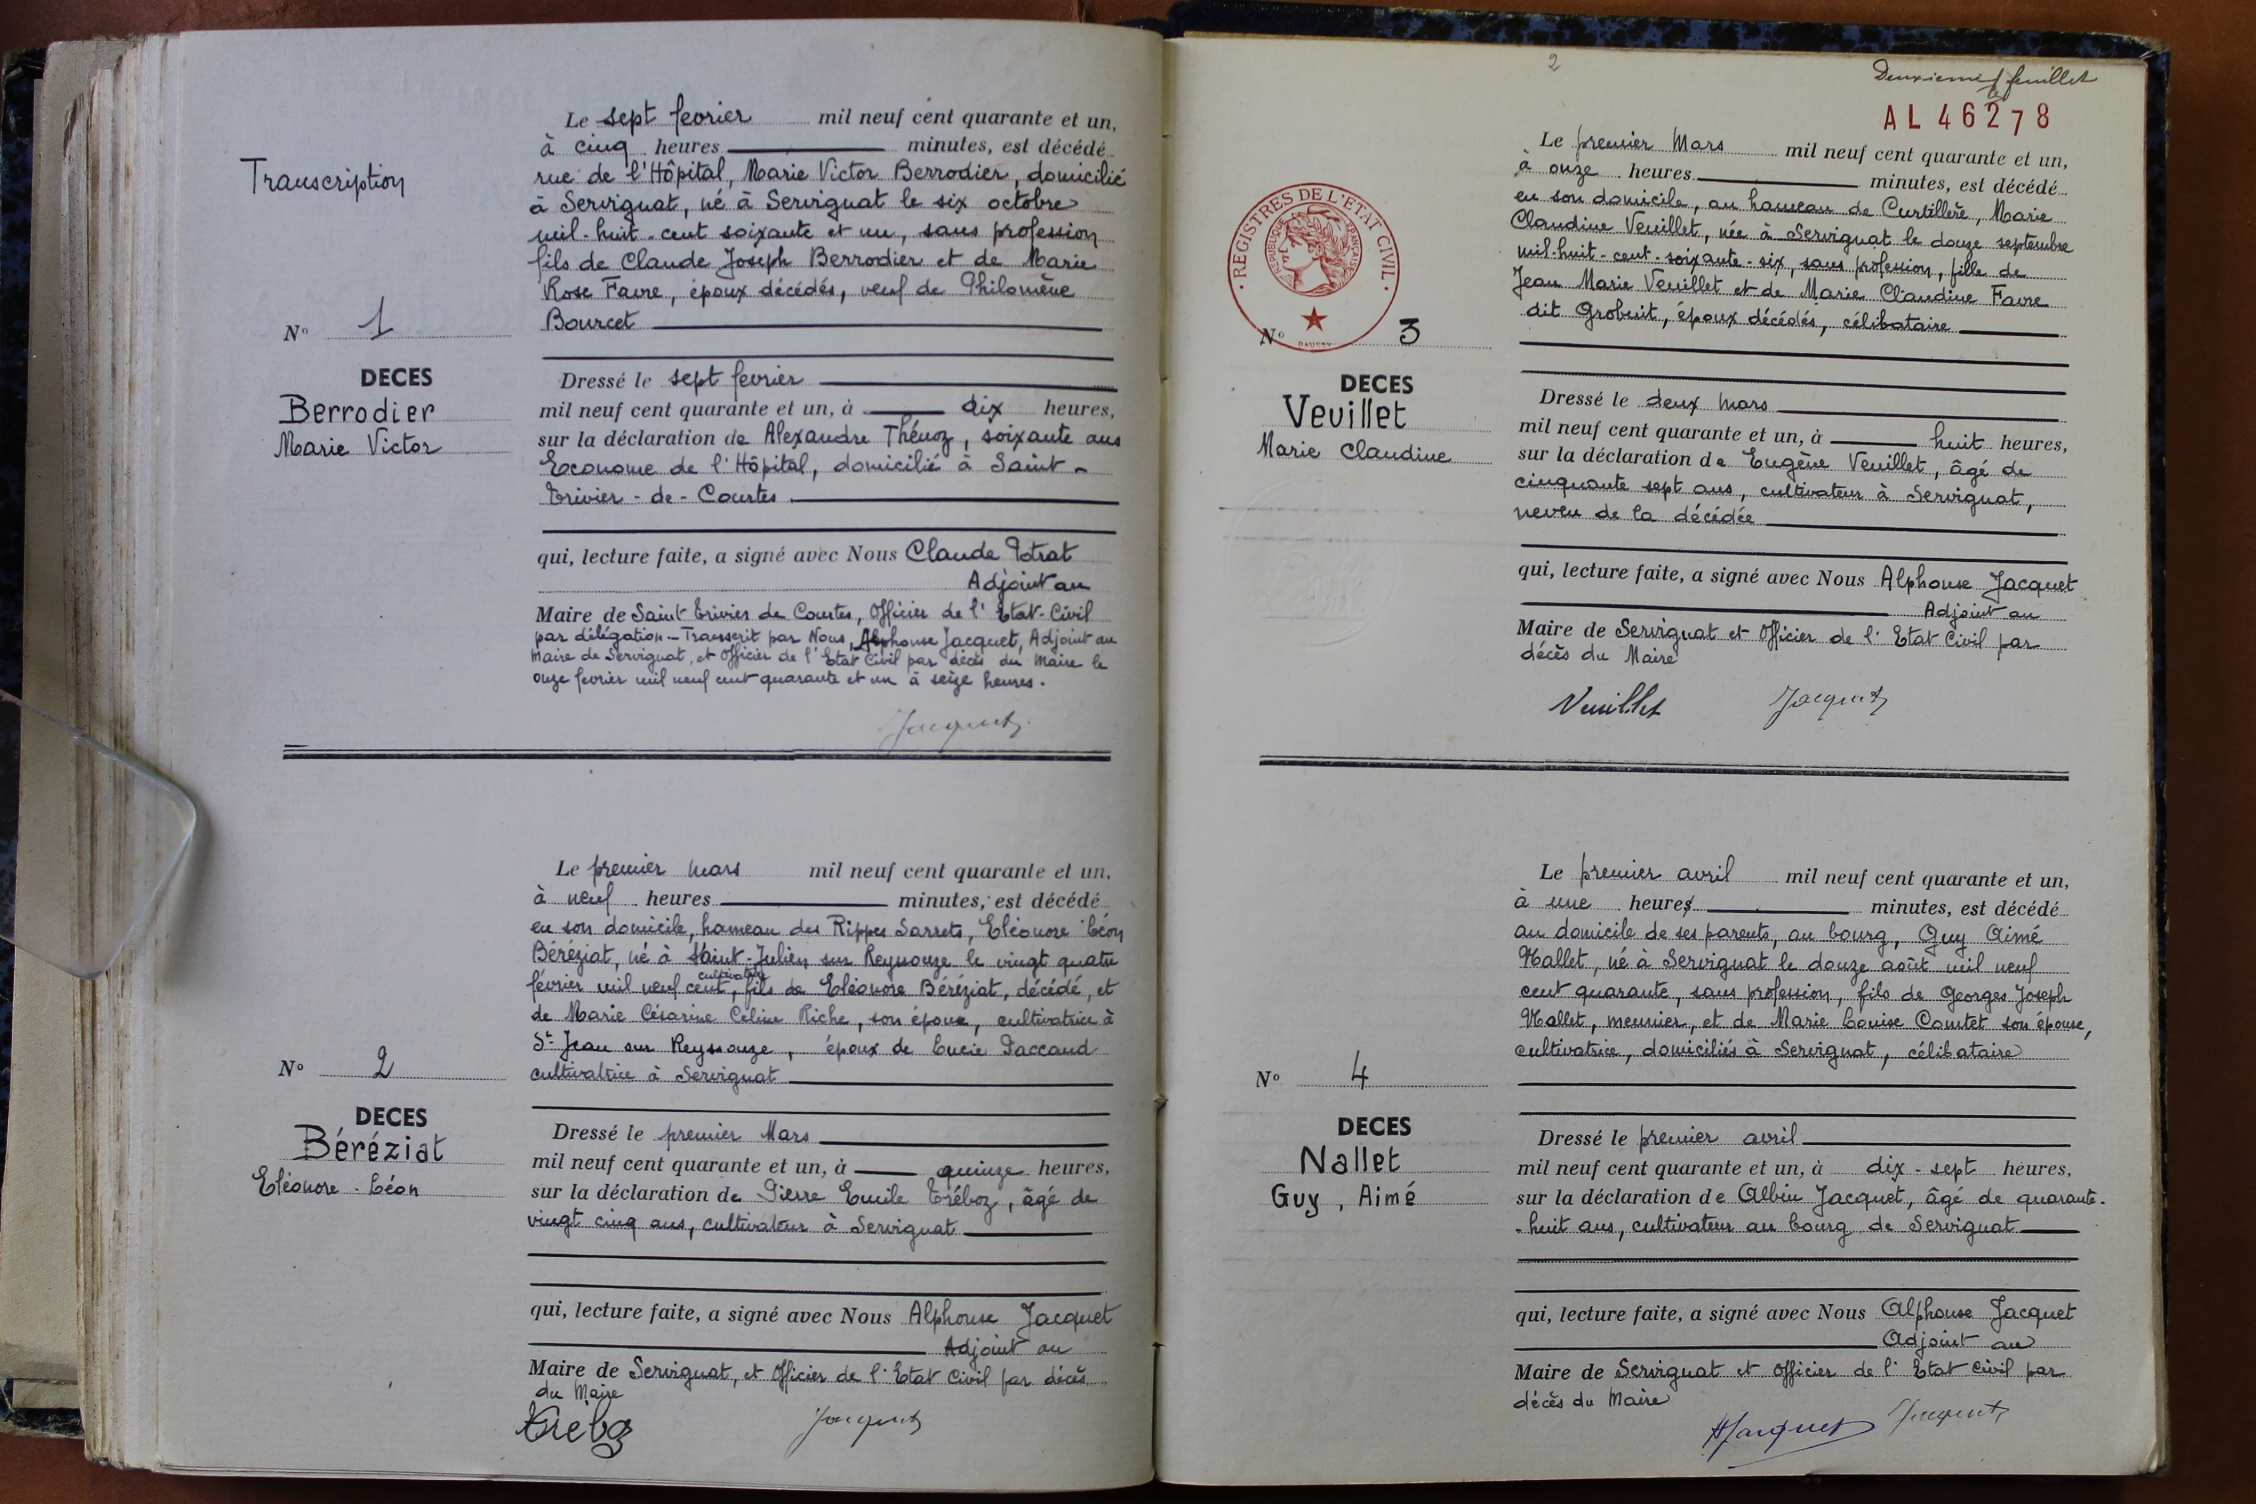 Transcription
Le sept fevrier mil neuf cent quarante et un,
à cinq heures minutes, est décédé
rue de l'Hôpital, Marie Victor Berrodier, domicilié
à Servignat, né à Servignat le six octobre
mil-huit-cent soixante et un, sans profession
fils de Claude Joseph Berrodier et de Marie
Rose Favre, époux décédés, veuf de Philomène
Bourcet
N° 1
DECES
Berrodier
Marie Victor
Dressé le sept fevrier
mil neuf cent quarante et un, à dix heures,
sur la déclaration de Alexandre Thénoz, soixante ans
Econome de l'Hôpital, domicilié à Saint-
Trivier-de-Courtes
qui, lecture faite, a signé avec Nous Claude Etrat
Adjoint au
Maire de Saint Trivier de Courtes, Officier de l'Etat-Civil
par délégation - Transcrit par Nous, Alphonse Jacquet, Adjoint au
Maire de Servignat, et Officier de l'Etat Civil par décès du Maire le
onze fevrier mil neuf cent quarante et un à seize heures.
Jacquet
Le premier mars mil neuf cent quarante et un,
à neuf heures minutes, est décédé
en son domicile, hameau des Rippes Sarrets, Eléonore Léon
Béréziat, né à Saint-Julien sur Reyssouze le vingt quatre
cultivateur
février mil neuf cent, fils de Eléonore Béréziat, décédé, et
de Marie Césarine Céline Riche, son épouse, cultivatrice à
St Jean sur Reyssouze, époux de Lucie Paccaud
cultivatrice à Servignat
N° 2
DECES
Béréziat
Eléonore-Léon
Dressé le premier Mars
mil neuf cent quarante et un, à quinze heures,
sur la déclaration de Pierre Emile Tréboz, âgé de
vingt cinq ans, cultivateur à Servignat
qui, lecture faite, a signé avec Nous Alphonse Jacquet
Adjoint au
Maire de Servignat, et Officier de l'Etat Civil par décès
du Maire
Tréboz Jacquet
2
Deuxième feuillet
AL 46278
REGISTRES DE L'ETAT CIVIL
REPUBLIQUE FRANÇAISE
Le premier Mars mil neuf cent quarante et un,
à onze heures minutes, est décédé
en son domicile, au hameau de Curtillere, Marie
Claudine Veuillet, née à Servignat le douze septembre
mil-huit-cent-soixante-six, sans profession, fille de
Jean Marie Veuillet et de Marie Claudine Favre
dit Grobuit, époux décédés, célibataire
N° 3
DECES
Veuillet
Marie Claudine
Dressé le deux Mars
mil neuf cent quarante et un, à huit heures,
sur la déclaration de Eugène Veuillet, âgé de
cinquante sept ans, cultivateur à Servignat,
neveu de la décédée
qui, lecture faite, a signé avec Nous Alphonse Jacquet
Adjoint au
Maire de Servignat et Officier de l'Etat Civil par
décès du Maire
Veuillet Jacquet
Le premier avril mil neuf cent quarante et un,
à une heures minutes, est décédé
au domicile de ses parents, au bourg, Guy Aimé
Nallet, né à Servignat le douze août mil neuf
cent quarante, sans profession, fils de Georges Joseph
Nallet, meunier, et de Marie Louise Comtet son épouse,
cultivatrice, domiciliés à Servignat, célibataire
N° 4
DECES
Nallet
Guy, Aimé
Dressé le premier avril
mil neuf cent quarante et un, à dix-sept heures,
sur la déclaration de Albin Jacquet, âgé de quarante-
-huit ans, cultivateur au bourg de Servignat
qui, lecture faite, a signé avec Nous Alphonse Jacquet
Adjoint au
Maire de Servignat et Officier de l'Etat Civil par
décès du Maire
AJacquet Jacquet